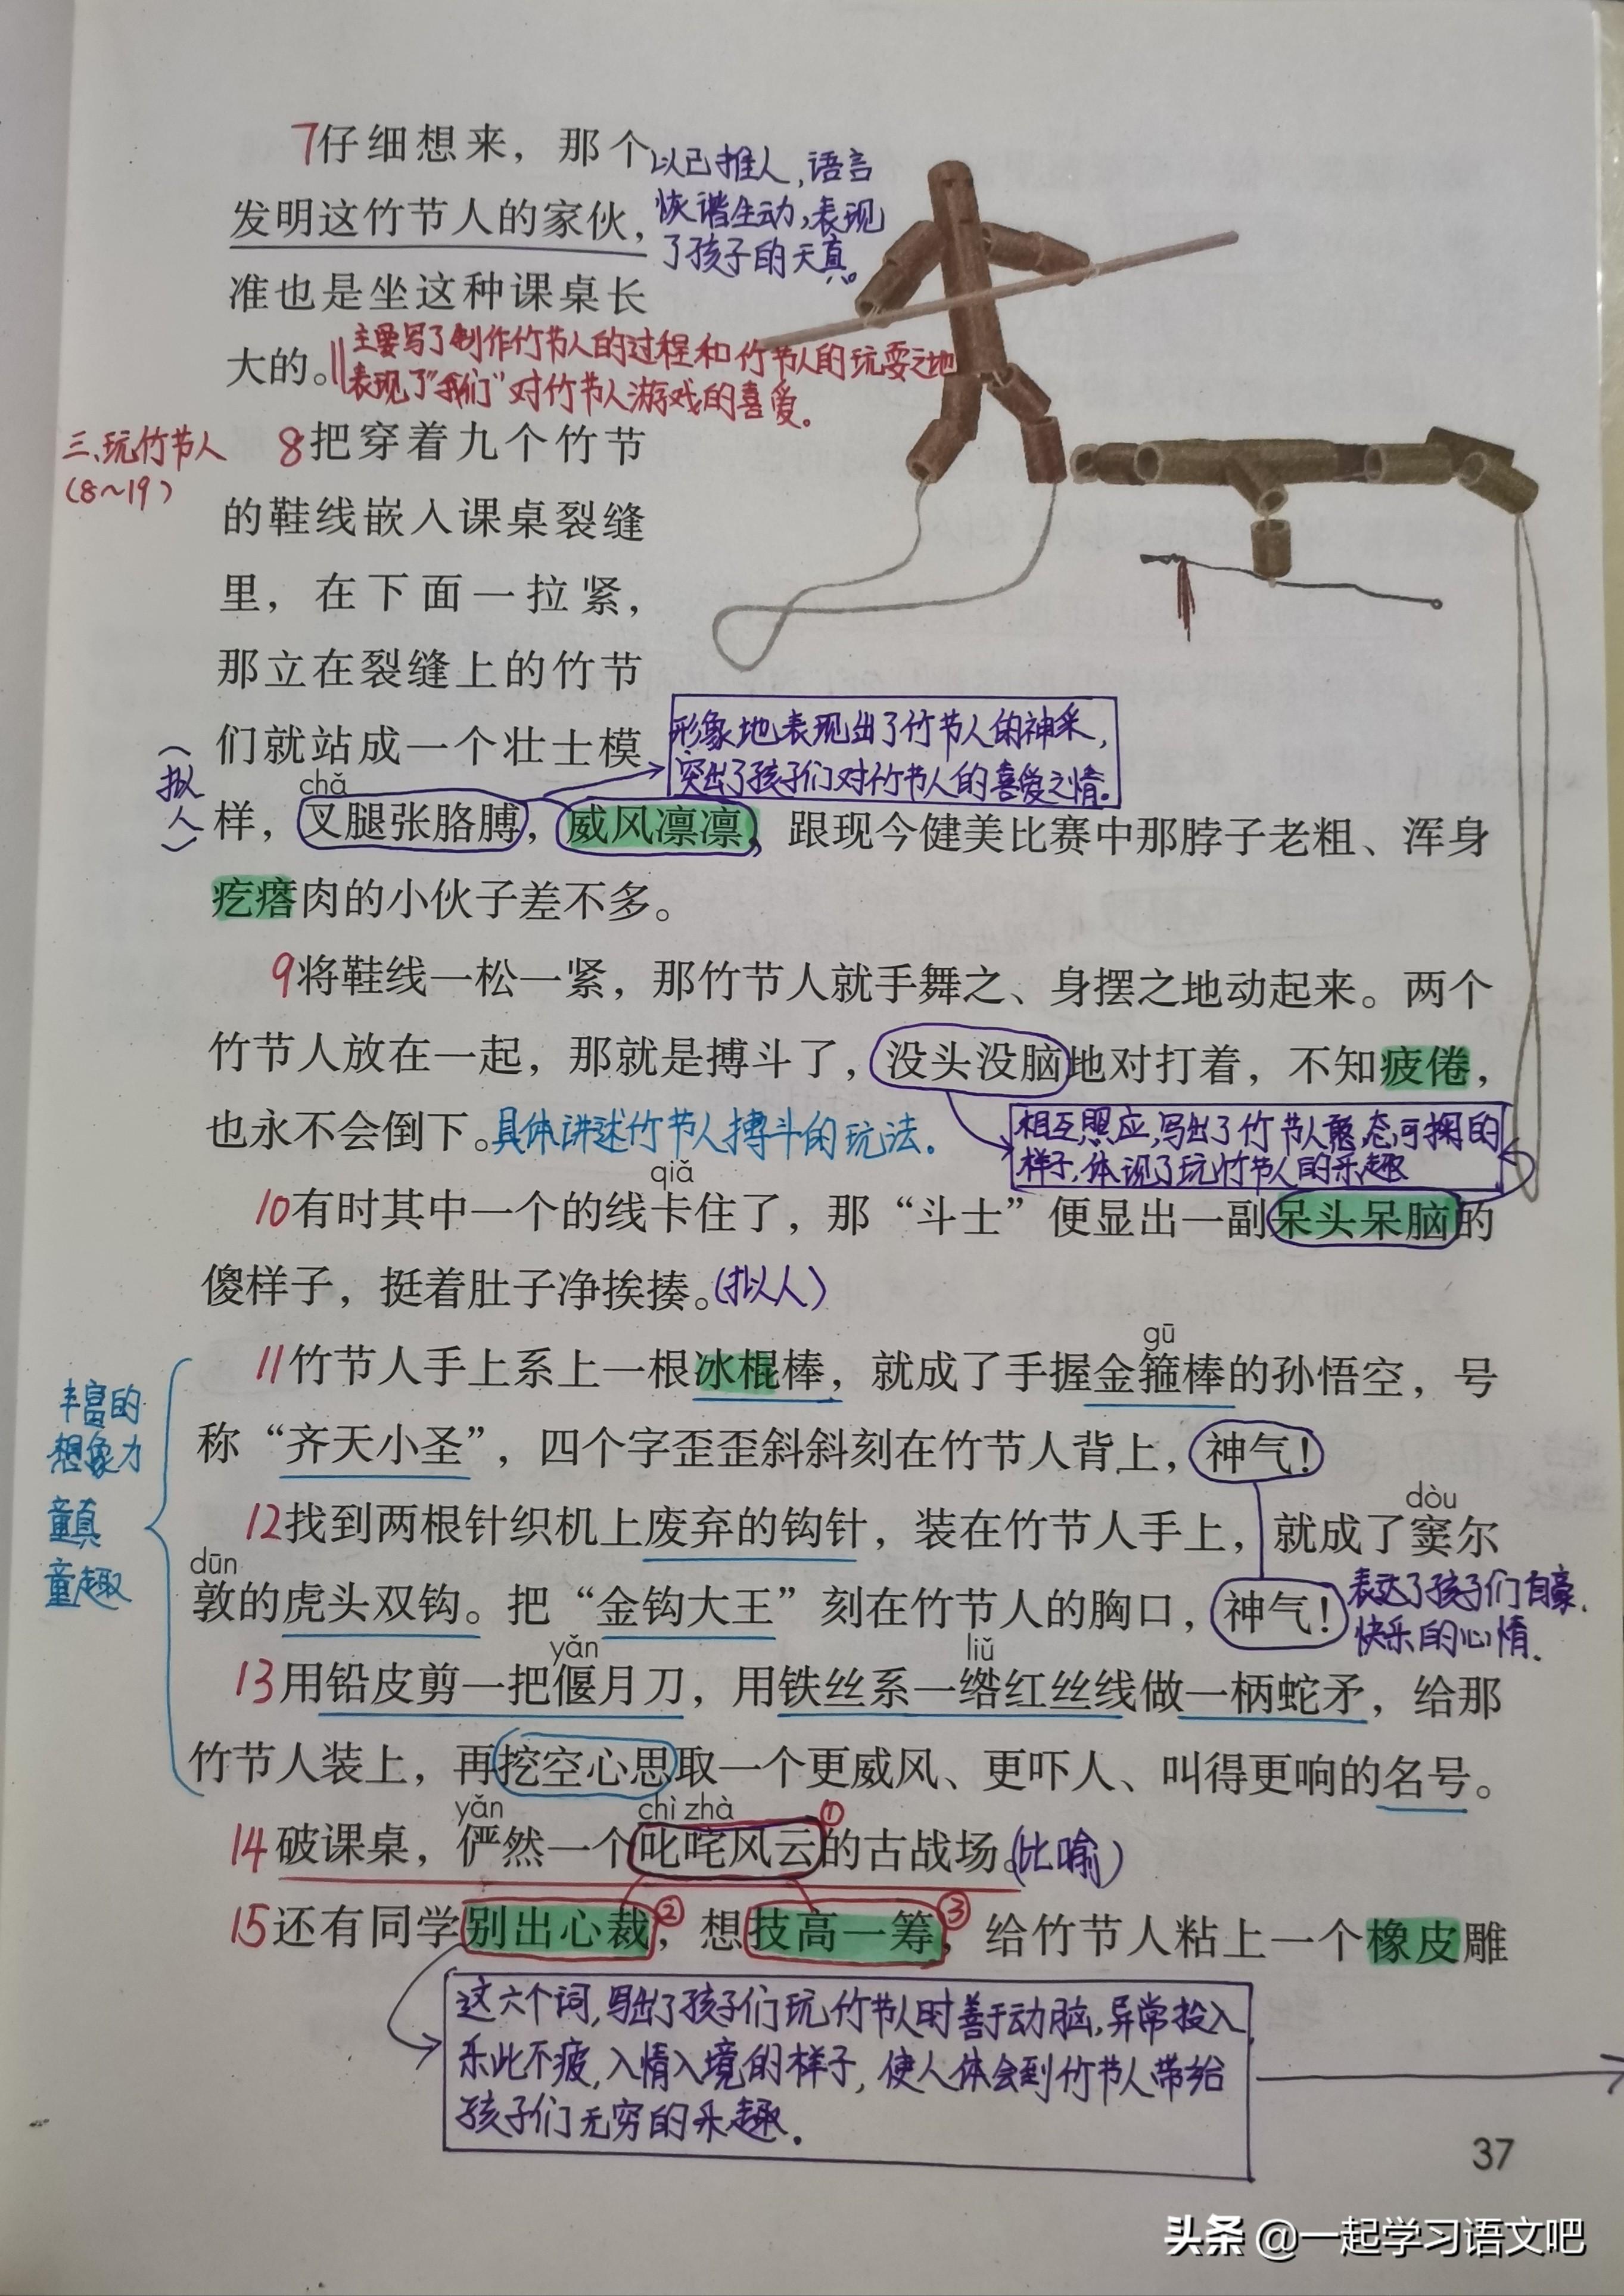 7仔细想来，那个
发明这竹节人的家伙，
准也是坐这种课桌长
大的。
以己推人，语言
恢谐生动，表现
了孩子的天真。
主要写了制作竹节人的过程和竹节人的玩耍之地
表现了“我们”对竹节人游戏的喜爱。
三、玩竹节人
（8～19）
8把穿着九个竹节
的鞋线嵌入课桌裂缝
里，在下面一拉紧，
那立在裂缝上的竹节
们就站成一个壮士模
（拟人）
形象地表现出了竹节人的神采，
突出了孩子们对竹节人的喜爱之情。
chǎ
样，叉腿张胳膊，威风凛凛，跟现今健美比赛中那脖子老粗、浑身
疙瘩肉的小伙子差不多。
9将鞋线一松一紧，那竹节人就手舞之、身摆之地动起来。两个
竹节人放在一起，那就是搏斗了，没头没脑地对打着，不知疲倦，
也永不会倒下。具体讲述竹节人搏斗的玩法。
相互照应，写出了竹节人憨态可掬的
样子，体现了玩竹节人的乐趣
qiǎ
10有时其中一个的线卡住了，那“斗士”便显出一副呆头呆脑的
傻样子，挺着肚子净挨揍。（拟人）
gū
11竹节人手上系上一根冰棍棒，就成了手握金箍棒的孙悟空，号
称“齐天小圣”，四个字歪歪斜斜刻在竹节人背上，神气！
丰富的
想象力
童真
童趣
dòu
12找到两根针织机上废弃的钩针，装在竹节人手上，就成了窦尔
dūn
敦的虎头双钩。把“金钩大王”刻在竹节人的胸口，神气！
表达了孩子们自豪、
快乐的心情.
yǎn liǔ
13用铅皮剪一把偃月刀，用铁丝系一绺红丝线做一柄蛇矛，给那
竹节人装上，再挖空心思取一个更威风、更吓人、叫得更响的名号。
yǎn chì zhà
14破课桌，俨然一个叱咤风云①的古战场。（比喻）
15还有同学别出心裁②，想技高一筹③，给竹节人粘上一个橡皮雕
这六个词，写出了孩子们玩竹节人时善于动脑，异常投入，
乐此不疲，入情入境的样子，使人体会到竹节人带给
孩子们无穷的乐趣.
37
头条 @一起学习语文吧